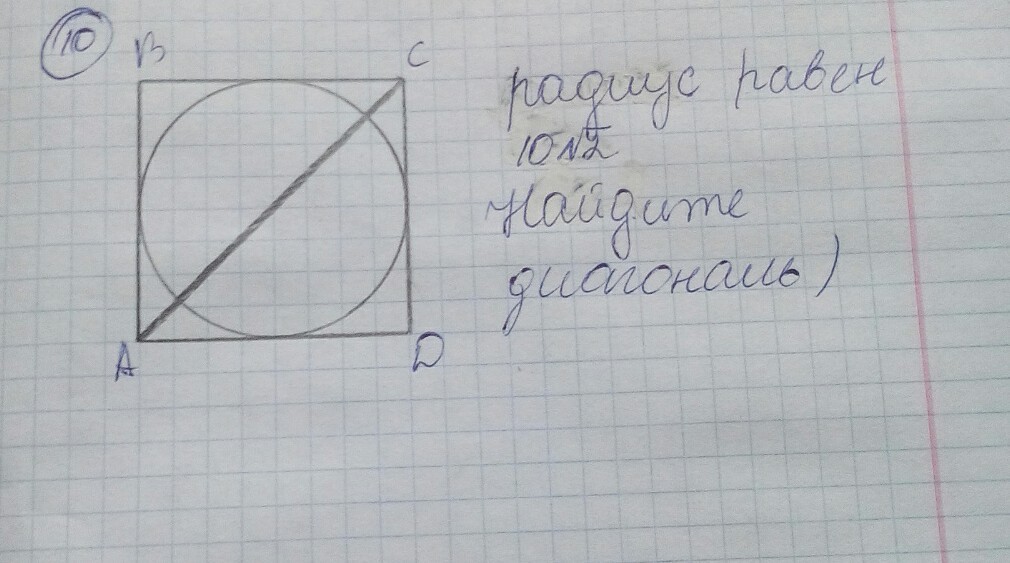 10
B C
радиус равен
10√2
Найдите
диагональ)
A D